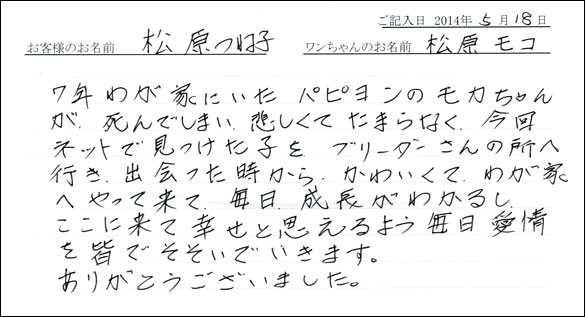 ご記入日 2014年 5月 18日
お客様のお名前 松原つね子 ワンちゃんのお名前 松原モコ
7年わが家にいた パピヨンのモカちゃん
が、死んでしまい、悲しくて たまらなく、今回
ネットで見つけた子を、ブリーダーさんの所へ
行き、出会った時から、かわいくて、わが家
へやって来て、毎日、成長がわかるし、
ここに来て幸せと思えるよう毎日愛情
を皆でそそいでいきます。
ありがとうございました。